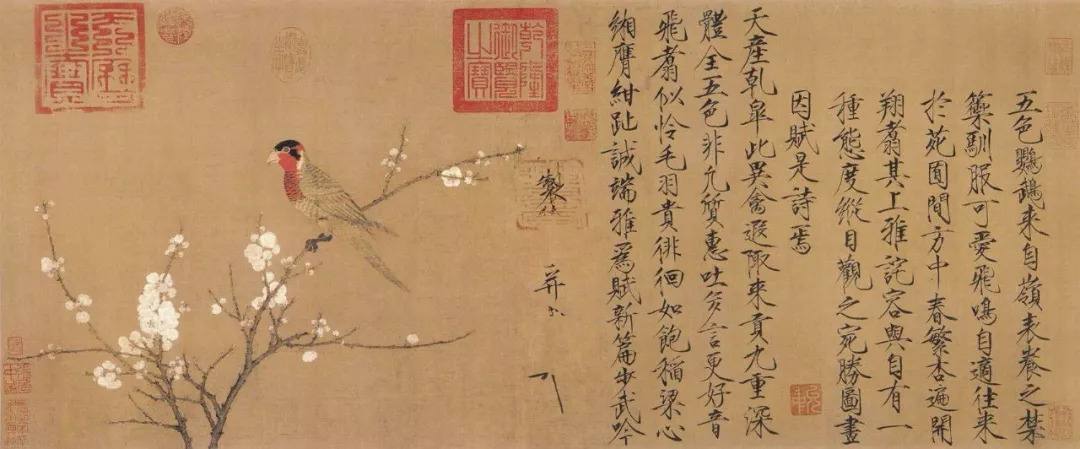 五色鸚鵡来自嶺表養之禁
籞馴服可愛飛鳴自適往来
於苑囿間方中春繁杏遍開
翔翥其上雅詫容與自有一
種態度縱目觀之宛勝圖畫
因賦是詩焉
天產乾皋此異禽遐陬来貢九重深
體全五色非凡質惠吐多言更好音
飛翥似怜毛羽貴徘徊如飽稻粱心
緗膺紺趾誠端雅為賦新篇步武吟
製
并書
乾隆御覽之寶